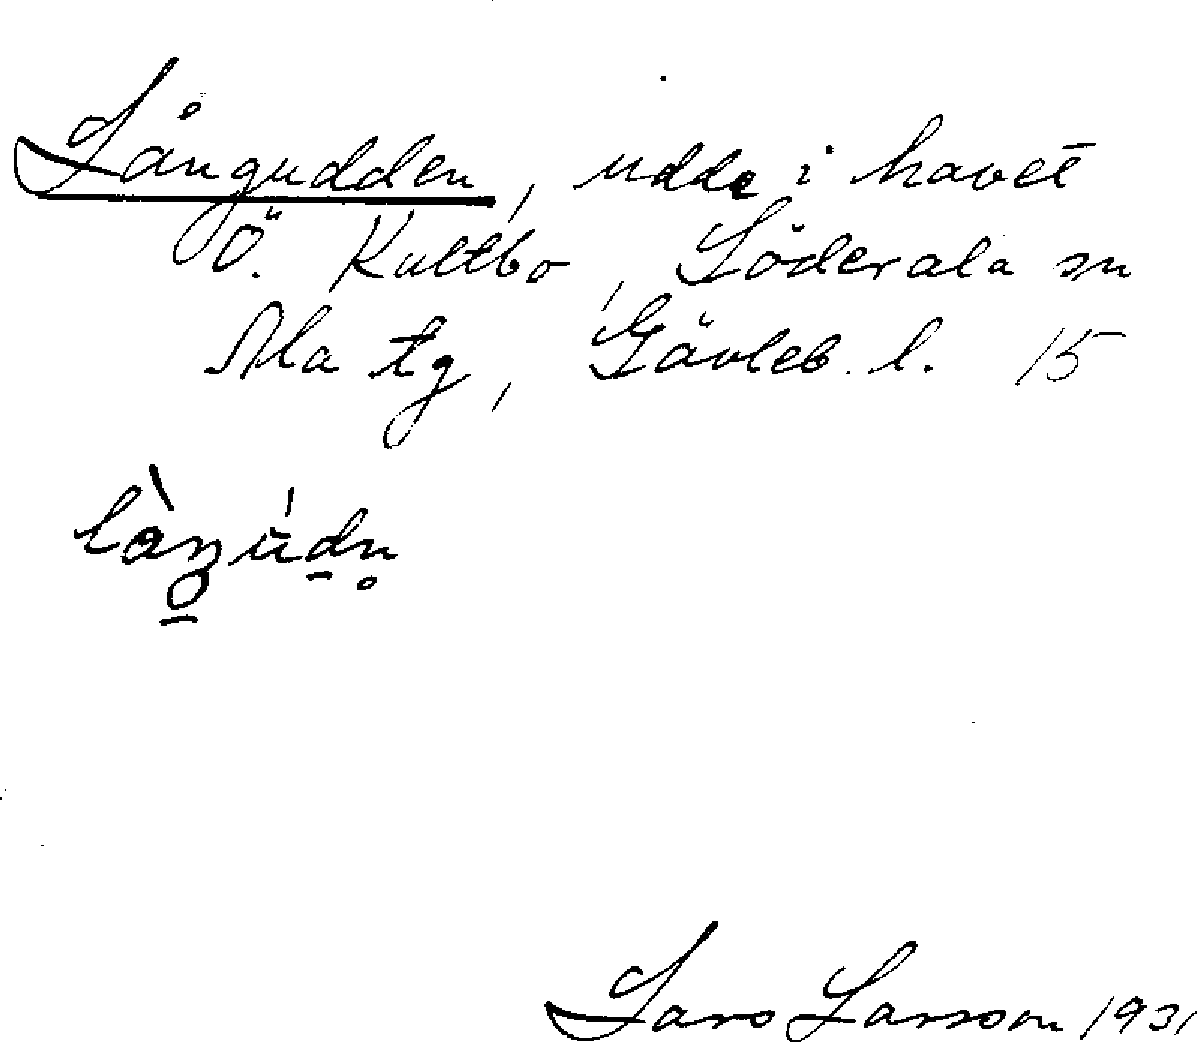 Långudden, udde i havet
Ö. Kultbo, Söderala sn
Ala tg, Gävleb. l. 15
Lars Larsson 1931